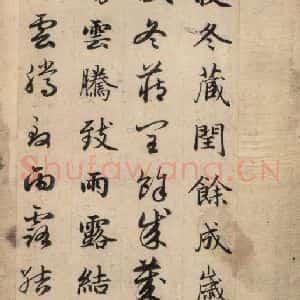 收冬藏閏餘成歲
冬藏閏餘成歲
雲騰致雨露結
雲騰致雨露結
Shufawang.CN